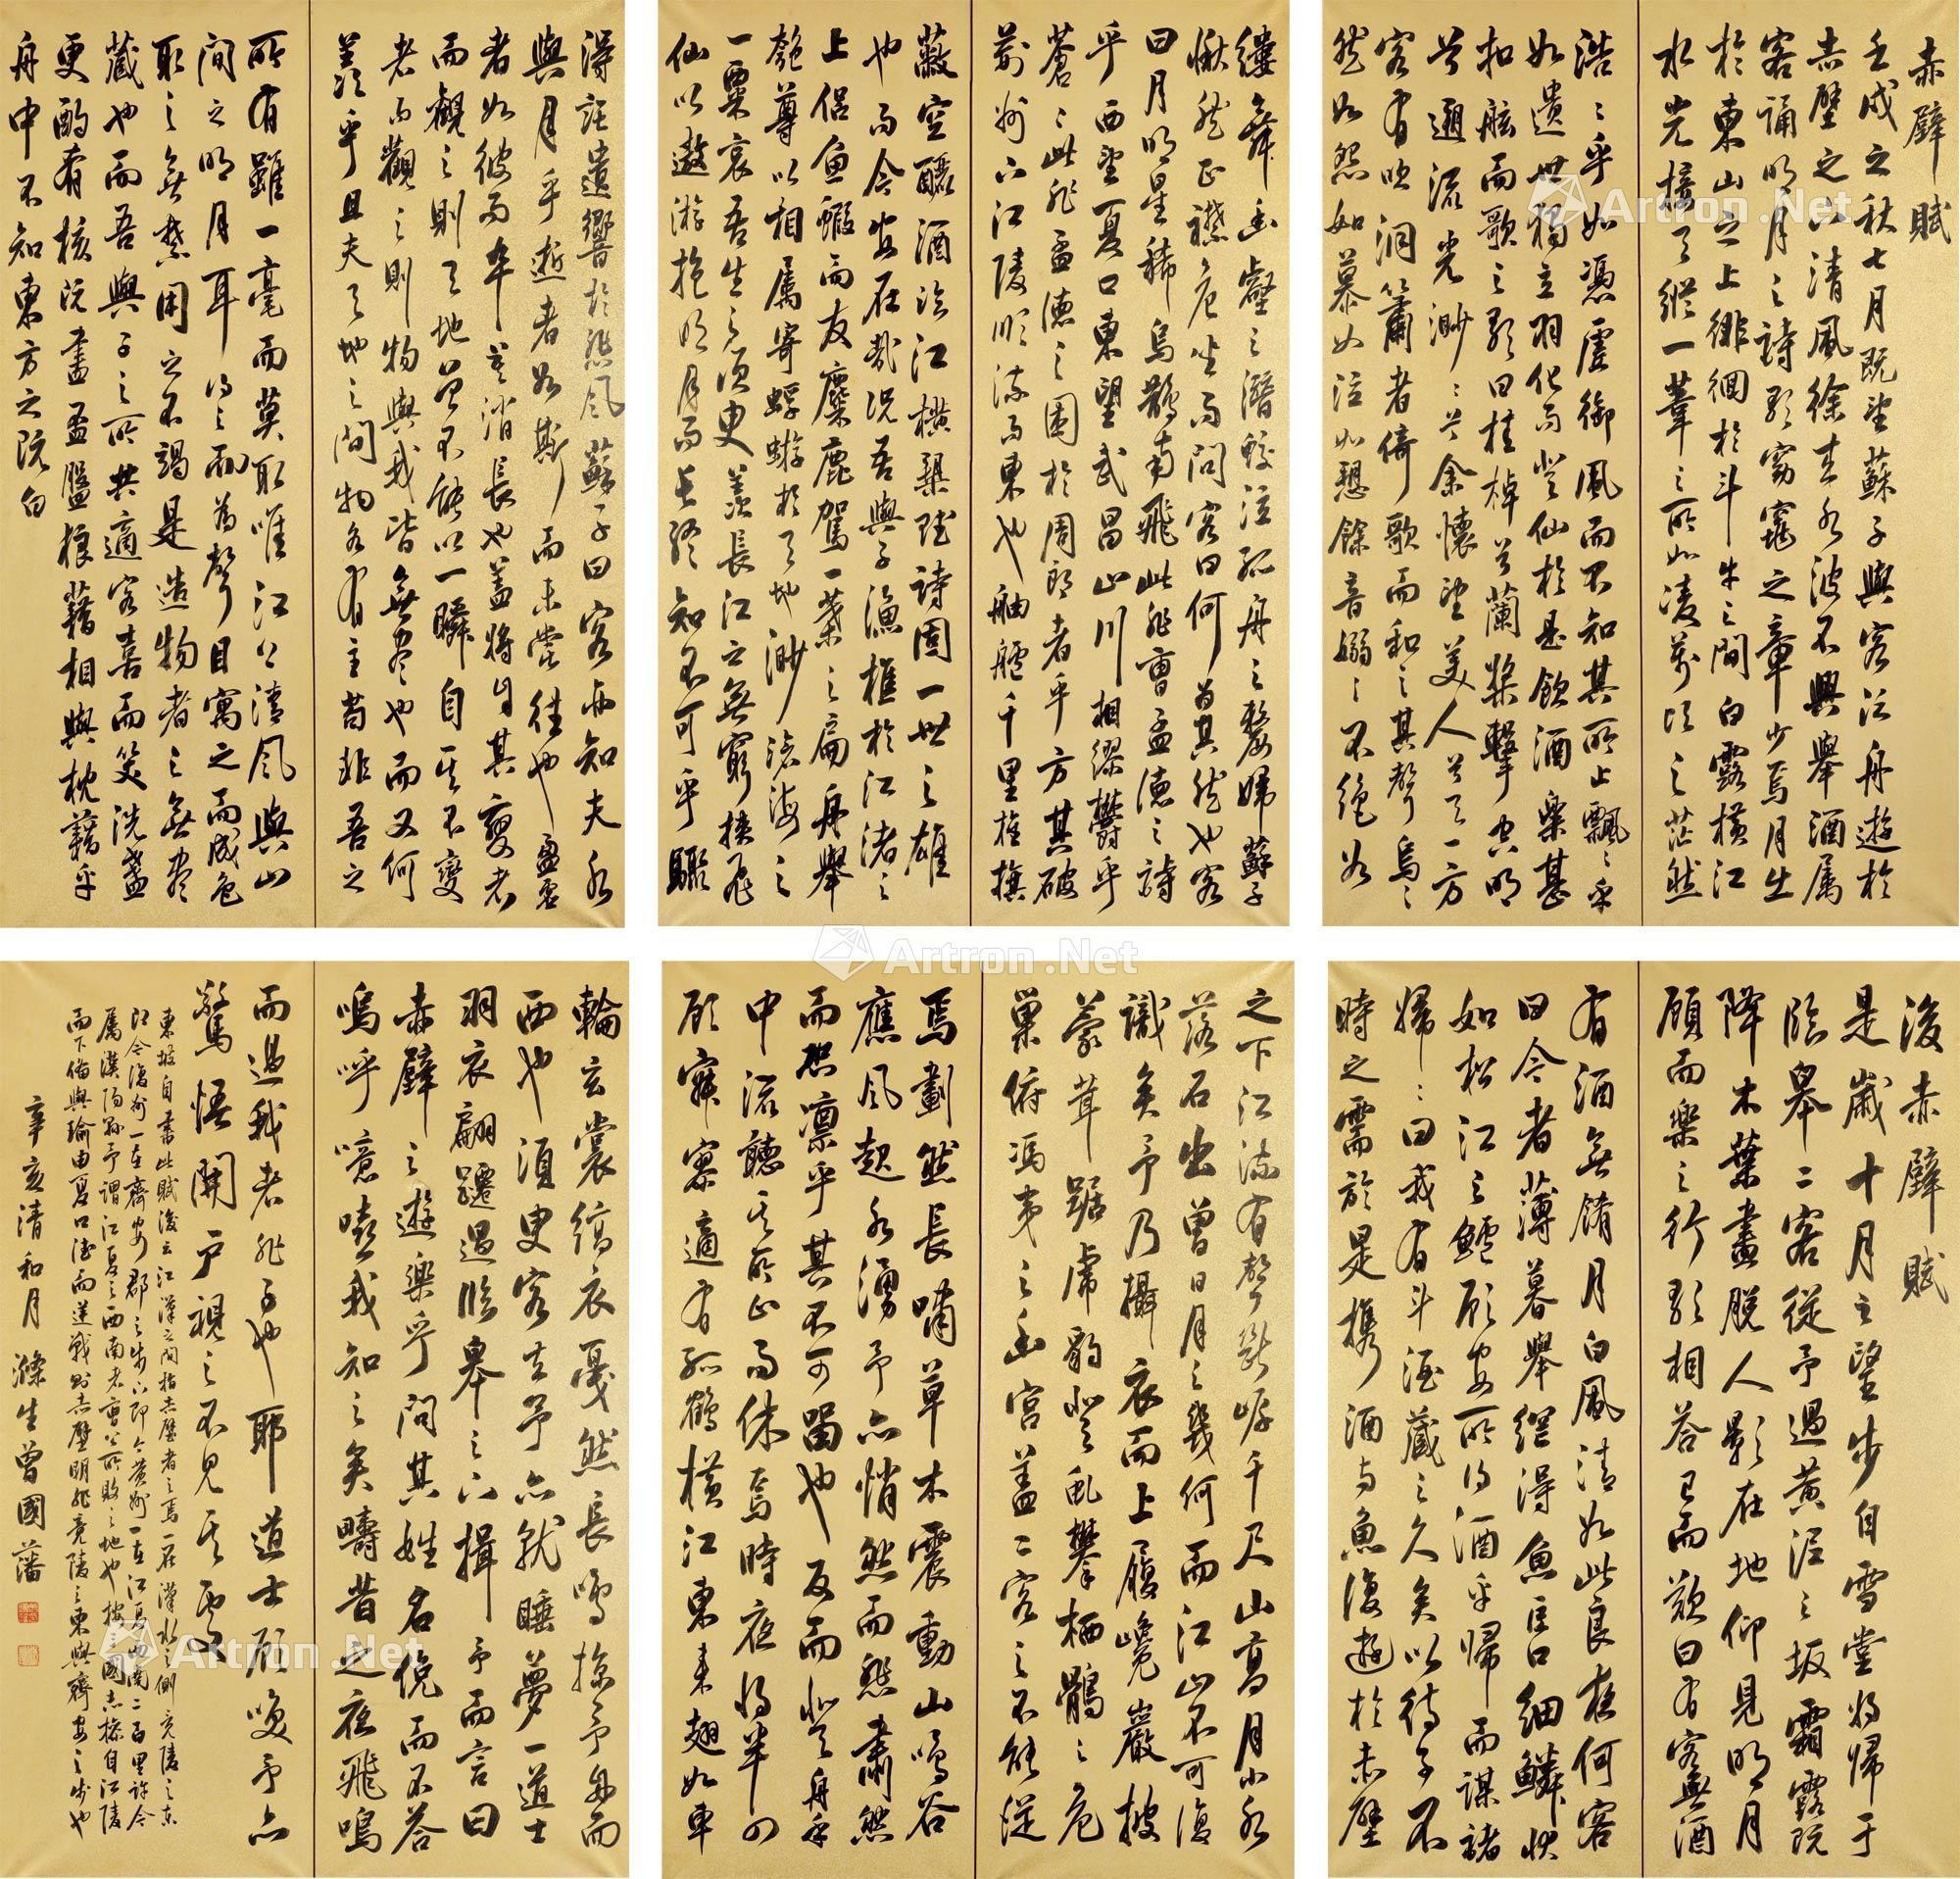 赤壁賦
壬戌之秋七月既望蘇子與客泛舟遊於
赤壁之下清風徐來水波不興舉酒属
客誦明月之詩歌窈窕之章少焉月出
於東山之上徘徊於斗牛之間白露橫江
水光接天縱一葦之所如凌萬頃之茫然
浩〻乎如馮虛御風而不知其所止飄〻乎
如遺世獨立羽化而登仙於是飲酒樂甚
扣舷而歌之歌曰桂棹兮蘭槳擊空明
兮遡流光渺〻兮余懷望美人兮天一方
客有吹洞簫者倚歌而和之其聲烏〻
然如怨如慕如泣如愬餘音嫋〻不絕如
縷舞幽壑之潛蛟泣孤舟之嫠婦蘇子
愀然正襟危坐而問客曰何為其然也客
曰月明星稀烏鵲南飛此非曹孟德之詩
乎西望夏口東望武昌山川相繆鬱乎
蒼〻此非孟德之困於周郎者乎方其破
荊州下江陵順流而東也舳艫千里旌旗
蔽空釃酒臨江橫槊賦詩固一世之雄
也而今安在哉況吾與子漁樵於江渚之
上侶魚蝦而友麋鹿駕一葉之扁舟舉
匏尊以相属寄蜉蝣於天地渺滄海之
一粟哀吾生之須臾羨長江之無窮挾飛
仙以遨游抱明月而長終知不可乎驟
得託遺響於悲風蘇子曰客亦知夫水
與月乎逝者如斯而未嘗往也盈虛
者如彼而卒莫消長也蓋將自其變者
而觀之則天地曾不能以一瞬自其不變
者而觀之則物與我皆無盡也而又何
羨乎且夫天地之間物各有主苟非吾之
所有雖一毫而莫取唯江上清風與山
間之明月耳得之而為聲目寓之而成色
取之無禁用之不竭是造物者之無盡
藏也而吾與子之所共適客喜而笑洗盞
更酌肴核既盡盃盤狼藉相與枕藉乎
舟中不知東方之既白
後赤壁賦
是歲十月之望步自雪堂將歸于
臨皋二客從予過黃泥之坂霜露既
降木葉盡脫人影在地仰見明月
顧而樂之行歌相荅已而歎曰有客無酒
有酒無餚月白風清如此良夜何客
曰今者薄暮舉網得魚巨口細鱗狀
如松江之鱸顧安所得酒乎歸而謀諸
婦〻曰我有斗酒藏之久矣以待子不
時之需於是攜酒與魚復遊於赤壁
之下江流有聲斷岸千尺山高月小水
落石出曾日月之幾何而江山不可復
識矣予乃攝衣而上履巉巖披
蒙茸踞虎豹登虬攀栖鶻之危
巢俯馮夷之幽宮蓋二客之不能從
焉劃然長嘯草木震動山鳴谷
應風起水湧予亦悄然而悲肅然
而恐凛乎其不可留也反而登舟放
中流聽其所止而休焉時夜將半四
顧寂寥適有孤鶴橫江東來翅如車
輪玄裳縞衣戛然長鳴掠予舟而
西也須臾客去予亦就睡夢一道士
羽衣翩躚過臨皋之下揖予而言曰
赤壁之遊樂乎問其姓名俛而不荅
嗚呼噫嘻我知之矣疇昔之夜飛鳴
而過我者非子也耶道士顧笑予亦
驚悟開戶視之不見其處
東坡自書此賦後云江漢之間指赤壁者三焉一在漢水之側竟陵之東
江今復州一在齊安郡之步下即今黃州一在江夏西南二百里許今
属漢陽縣予謂江夏之西南者曹公所敗之地也按三國志操自江陵
而下備與瑜由夏口往而逆戰則赤壁明非竟陵之東與齊安之步也
辛亥清和月滌生曾國藩
Artron.Net
Artron.Net
Artron.Net
Artron.Net
Artron.Net